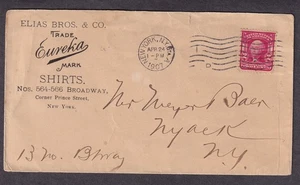 ELIAS BROS. & CO.
TRADE
Eureka
MARK
SHIRTS,
Nos. 564-566 BROADWAY,
Corner Prince Street,
NEW YORK.
NEW YORK, N.Y.
APR 24
1907
Mr Meyer Baer
Nyack
N.Y.